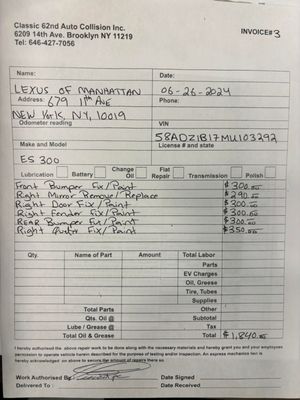 Classic 62nd Auto Collision Inc.
6209 14th Ave. Brooklyn NY 11219
Tel: 646-427-7056
INVOICE#3
Name: Date:
LEXUS OF MANHATTAN 06-26-2024
Address: 679 11th Ave Phone:
NEW York, NY, 10019
Odometer reading VIN
58ADZ1B17MU103292
Make and Model License # and state
ES 300
Lubrication Battery Change Oil Flat Repair Transmission Polish
Front Bumper Fix/Paint $300.00
Right Mirror Remove/Replace $290.00
Right Door Fix/Paint $300.00
Right Fender Fix/Paint $300.00
REAR Bumper Fix/Paint $300.00
Right Quarter Fix/Paint $350.00
Qty. Name of Part Amount Total Labor
Parts
EV Charges
Oil, Grease
Tire, Tubes
Supplies
Total Parts Other
Qts. Oil @ Subtotal
Lube / Grease @ Tax
Total Oil & Grease Total $1,840.00
I hereby authorized the above repair work to be done along with the necessary materials and hereby grant you and your employees
permission to operate vehicle herein described for the purpose of testing and/or inspection. An express mechanics lien is
hereby acknowledged on above to secure the amount of repairs there so
Work Authorised By Date Signed
Delivered To : Date Received